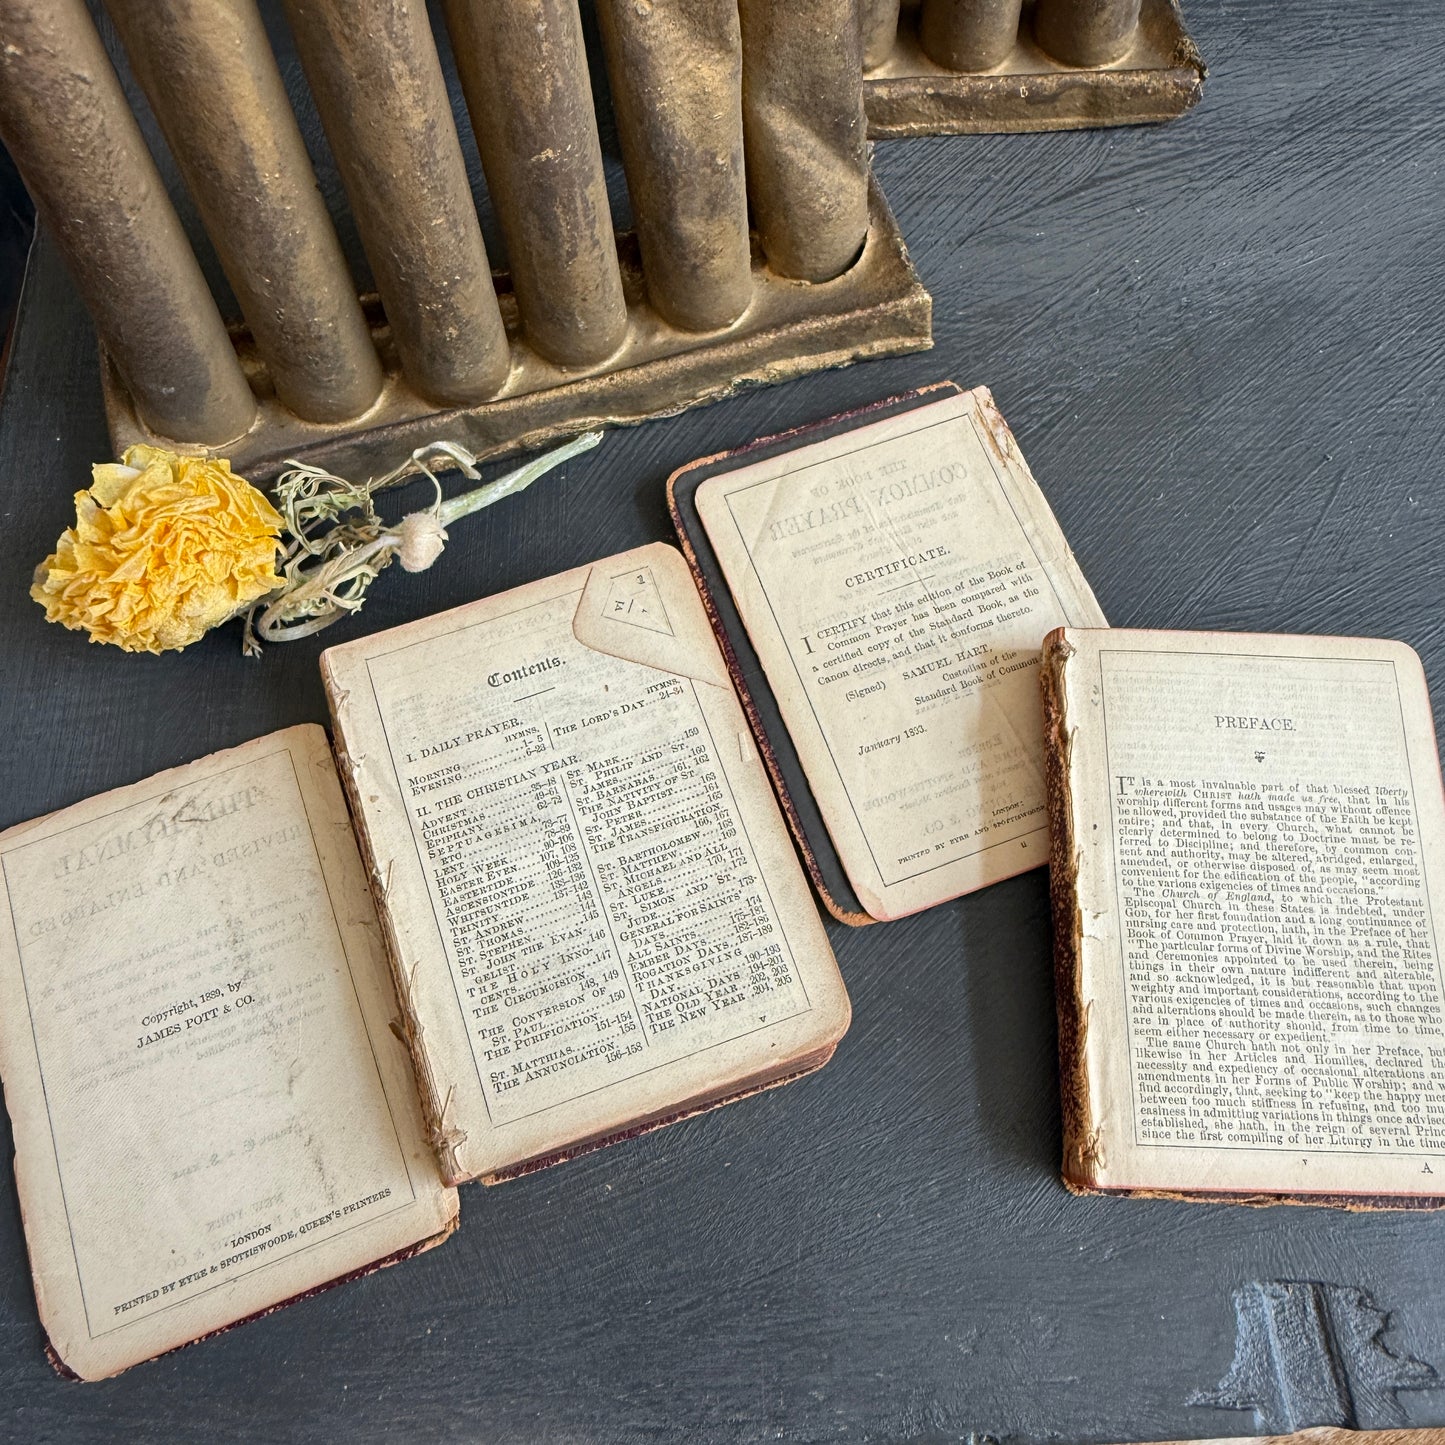 Copyright, 1889, by
JAMES POTT & CO.
LONDON
PRINTED BY EYRE & SPOTTISWOODE, QUEEN'S PRINTERS
Contents.
I. DAILY PRAYER.
HYMNS.
MORNING 1- 5
EVENING 6-23
HYMNS.
THE LORD'S DAY 24-34
II. THE CHRISTIAN YEAR.
ADVENT 35-48
CHRISTMAS 49-61
EPIPHANY 62-72
SEPTUAGESIMA,
ETC. 73-77
LENT 78-89
HOLY WEEK 90-106
EASTER EVEN 107, 108
EASTERTIDE 109-125
ASCENSIONTIDE 126-132
WHITSUNTIDE 133-136
TRINITY 137-142
ST. ANDREW 143
ST. THOMAS 144
ST. STEPHEN 145
ST. JOHN THE EVAN-
GELIST 146
THE HOLY INNO-
CENTS 147
THE CIRCUMCISION
148, 149
THE CONVERSION OF
ST. PAUL 150
THE PURIFICATION
151-154
ST. MATTHIAS 155
THE ANNUNCIATION 156-158
ST. MARK 159
ST. PHILIP AND ST.
JAMES 160
ST. BARNABAS 161, 162
THE NATIVITY OF ST.
JOHN BAPTIST 163
ST. PETER 164
ST. JAMES 165
THE TRANSFIGURATION
166, 167
ST. BARTHOLOMEW 168
ST. MATTHEW 169
ST. MICHAEL AND ALL
ANGELS 170, 171
ST. LUKE 172
ST. SIMON AND ST.
JUDE 173
GENERAL FOR SAINTS'
DAYS 174
ALL SAINTS 175-181
EMBER DAYS 182-186
ROGATION DAYS 187-189
THANKSGIVING
DAY 190-193
NATIONAL DAYS 194-201
THE OLD YEAR 202, 203
THE NEW YEAR 204, 205
v
CERTIFICATE.
I CERTIFY that this edition of the Book of
Common Prayer has been compared with
a certified copy of the Standard Book, as the
Canon directs, and that it conforms thereto.
(Signed) SAMUEL HART,
Custodian of the
Standard Book of Common
January 1893.
LONDON:
PRINTED BY EYRE AND SPOTTISWOODE
ii
PREFACE.
IT is a most invaluable part of that blessed liberty
wherewith CHRIST hath made us free, that in his
worship different forms and usages may without offence
be allowed, provided the substance of the Faith be kept
entire; and that, in every Church, what cannot be
clearly determined to belong to Doctrine must be re-
ferred to Discipline; and therefore, by common con-
sent and authority, may be altered, abridged, enlarged,
amended, or otherwise disposed of, as may seem most
convenient for the edification of the people, "according
to the various exigencies of times and occasions."
The Church of England, to which the Protestant
Episcopal Church in these States is indebted, under
GOD, for her first foundation and a long continuance of
nursing care and protection, hath, in the Preface of her
Book of Common Prayer, laid it down as a rule, that
"The particular forms of Divine Worship, and the Rites
and Ceremonies appointed to be used therein, being
things in their own nature indifferent and alterable,
and so acknowledged, it is but reasonable that upon
weighty and important considerations, according to the
various exigencies of times and occasions, such changes
and alterations should be made therein, as to those who
are in place of authority should, from time to time,
seem either necessary or expedient."
The same Church hath not only in her Preface, but
likewise in her Articles and Homilies, declared the
necessity and expediency of occasional alterations an
amendments in her Forms of Public Worship; and w
find accordingly, that, seeking to "keep the happy mea
between too much stiffness in refusing, and too muc
easiness in admitting variations in things once advised
established, she hath, in the reign of several Princ
since the first compiling of her Liturgy in the time
v
A